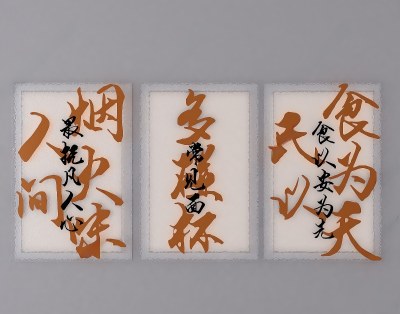 人间
烟火味
最抚凡人心
多碰杯
常见面
民以
食为天
食以安为先